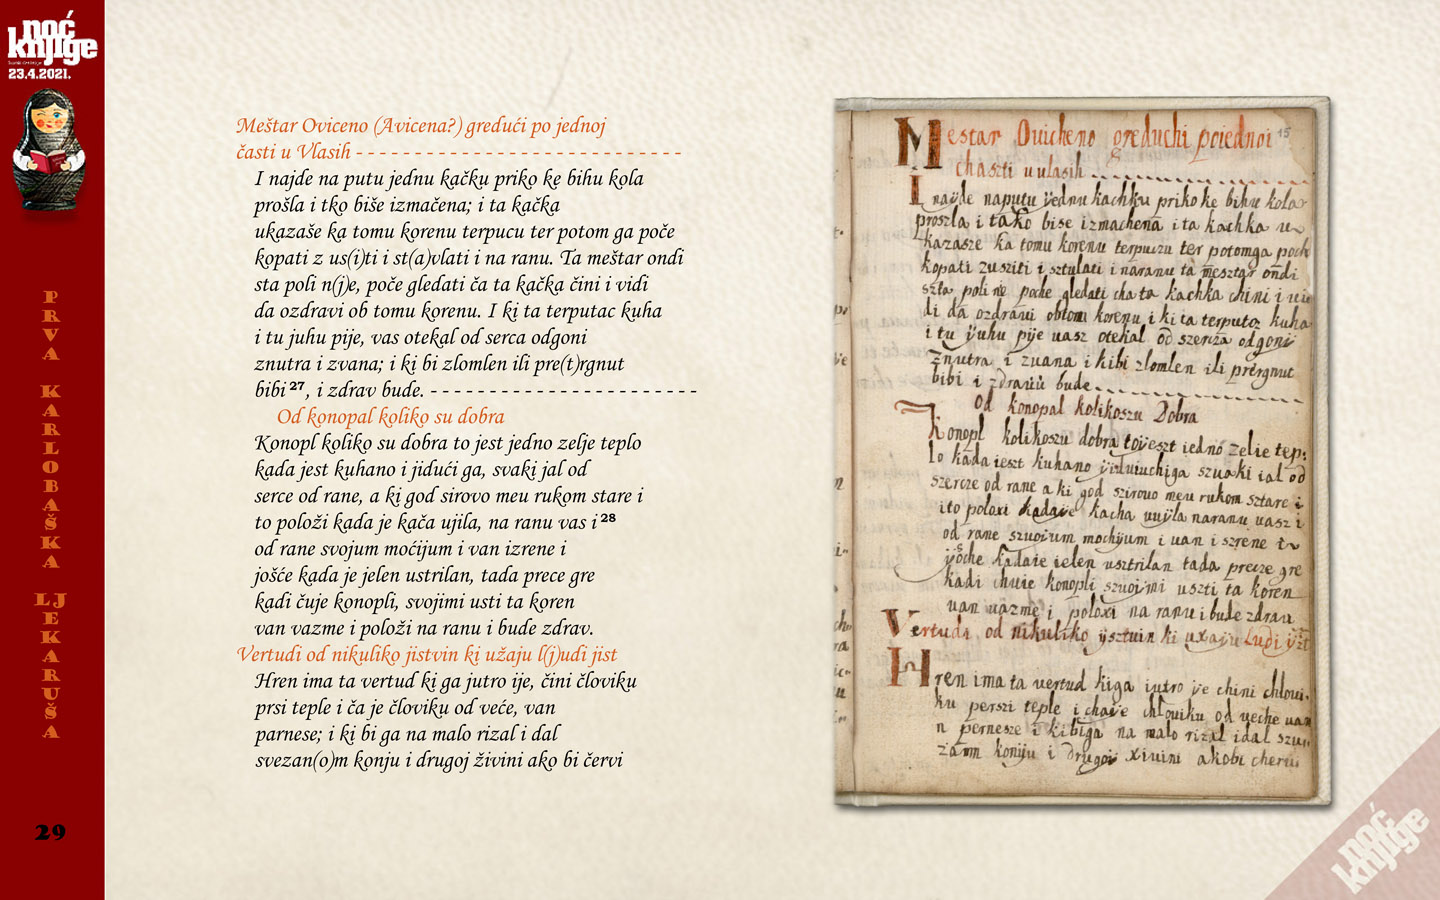 noć
knjige
23.4.2021.
PRVA KARLOBAŠKA LJEKARUŠA
29
Meštar Oviceno (Avicena?) gredući po jednoj
časti u Vlasih - - - - - - - - - - - - - - - - - - - - - - - - - - - -
I najde na putu jednu kačku priko ke bihu kola
prošla i tko biše izmačena; i ta kačka
ukazaše ka tomu korenu terpucu ter potom ga poče
kopati z us(i)ti i st(a)vlati i na ranu. Ta meštar ondi
sta poli n(j)e, poče gledati ča ta kačka čini i vidi
da ozdravi ob tomu korenu. I ki ta terputac kuha
i tu juhu pije, vas otekal od serca odgoni
znutra i zvana; i ki bi zlomlen ili pre(t)rgnut
bibi 27, i zdrav bude. - - - - - - - - - - - - - - - - - - - - - - -
Od konopal koliko su dobra
Konopl koliko su dobra to jest jedno zelje teplo
kada jest kuhano i jidući ga, svaki jal od
serce od rane, a ki god sirovo meu rukom stare i
to položi kada je kača ujila, na ranu vas i 28
od rane svojum moćijum i van izrene i
jošće kada je jelen ustrilan, tada prece gre
kadi čuje konopli, svojimi usti ta koren
van vazme i položi na ranu i bude zdrav.
Vertudi od nikuliko jistvin ki užaju l(j)udi jist
Hren ima ta vertud ki ga jutro ije, čini človiku
prsi teple i ča je človiku od veće, van
parnese; i ki bi ga na malo rizal i dal
svezan(o)m konju i drugoj živini ako bi červi
Mestar Ovicheno greduchi poiednoi 15
chaszti u ulasih
I nayde naputu yednu kachku prikoke bihu kola
proszla i tako bise izmachena i ta kachka u
kazasze ka tomu korenu terpuczu ter potomga poch
kopati zusziti i sztulati i naranu ta mesztar ondi
szta poli ne poche gledati cha ta kachka chini i vi
di da ozdravi obtom korenu i ki ta terputoz kuha
i tu yuhu pije uasz otekal od szerza odgoni
znutra i zuana i kibi zlomlen ili prergnut
bibi i zdravu bude
Od konopal kolikoszu Dobra
Konopl kolikoszu dobra toyeszt iedno zelie tep
lo kada ieszt kuhano yiduchiga szuaki ial od
szercze od rane a ki god szirovo meu rukom sztare i
ito poloxi kadaye kacha uuyla naranu uasz i
od rane szuoium mochyum i uan iszrene i
yosche kadaie ielen usztrilan tada precze gre
kadi chuie konopli szuoimi uszti ta koren
uan uazme i poloxi na ranu i bude zdrau
Vertudi od nikuliko ysztuin ki uxaju ludi yszt
Hren ima ta vertud kiga iutro ye chini chloui
ku perszi teple i chaye chloviku od veche uan
n pernesze i kibiga na malo rizal idal szu
zanm koniju i drugoi xiuini akobi cherui
noć
knjige